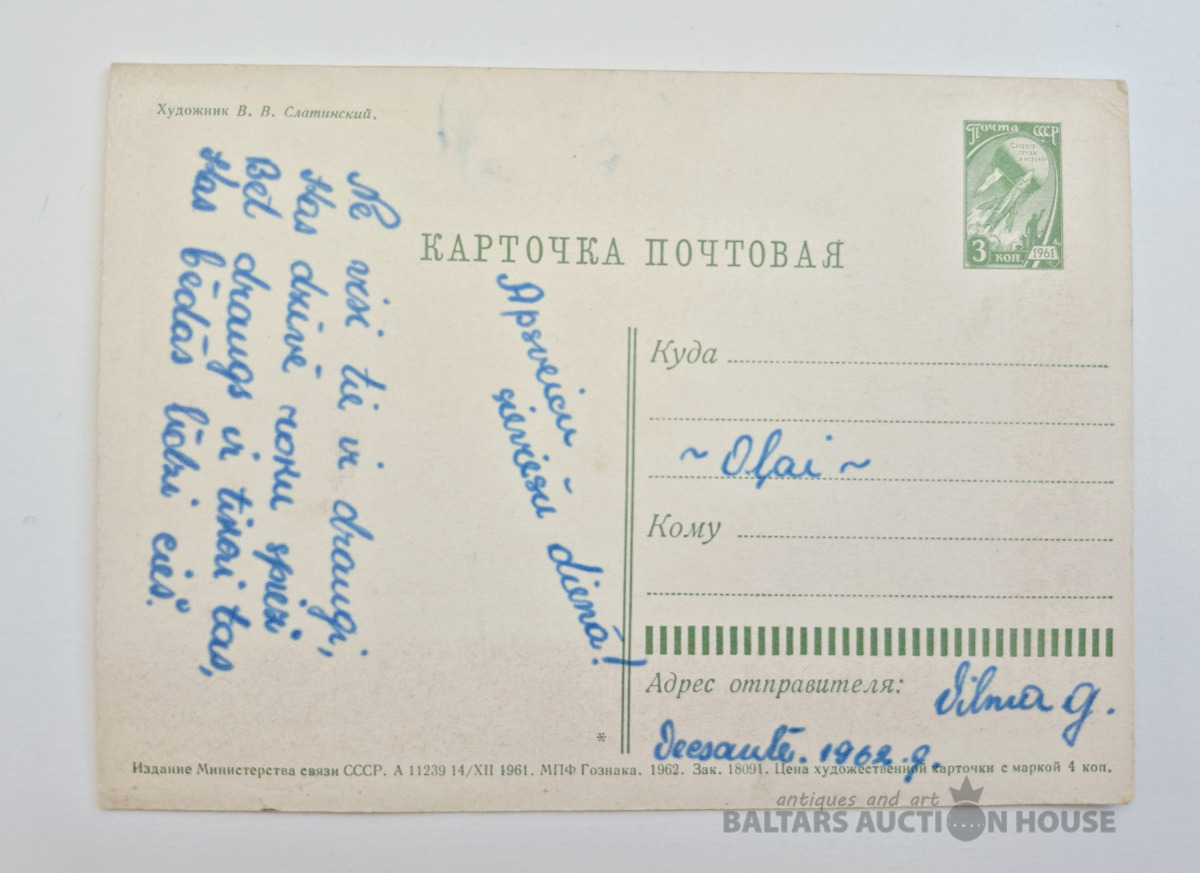 Художник В. В. Слатинский.
Почта СССР
3 коп 1961
КАРТОЧКА ПОЧТОВАЯ
Ne visi tie ir draugi,
Kas dzīvē roku spiež
Bet draugs ir tikai tas,
Kas bēdās līdzi cieš.
Apsveicu
dienā!
Куда
~ Oļai ~
Кому
Адрес отправителя:
Vilma G.
1962. g.
*
Издание Министерства связи СССР. А 11239 14/XII 1961. МПФ Гознака. 1962. Зак. 18091. Цена художественной карточки с маркой 4 коп.
antiques and art
BALTARS AUCTION HOUSE